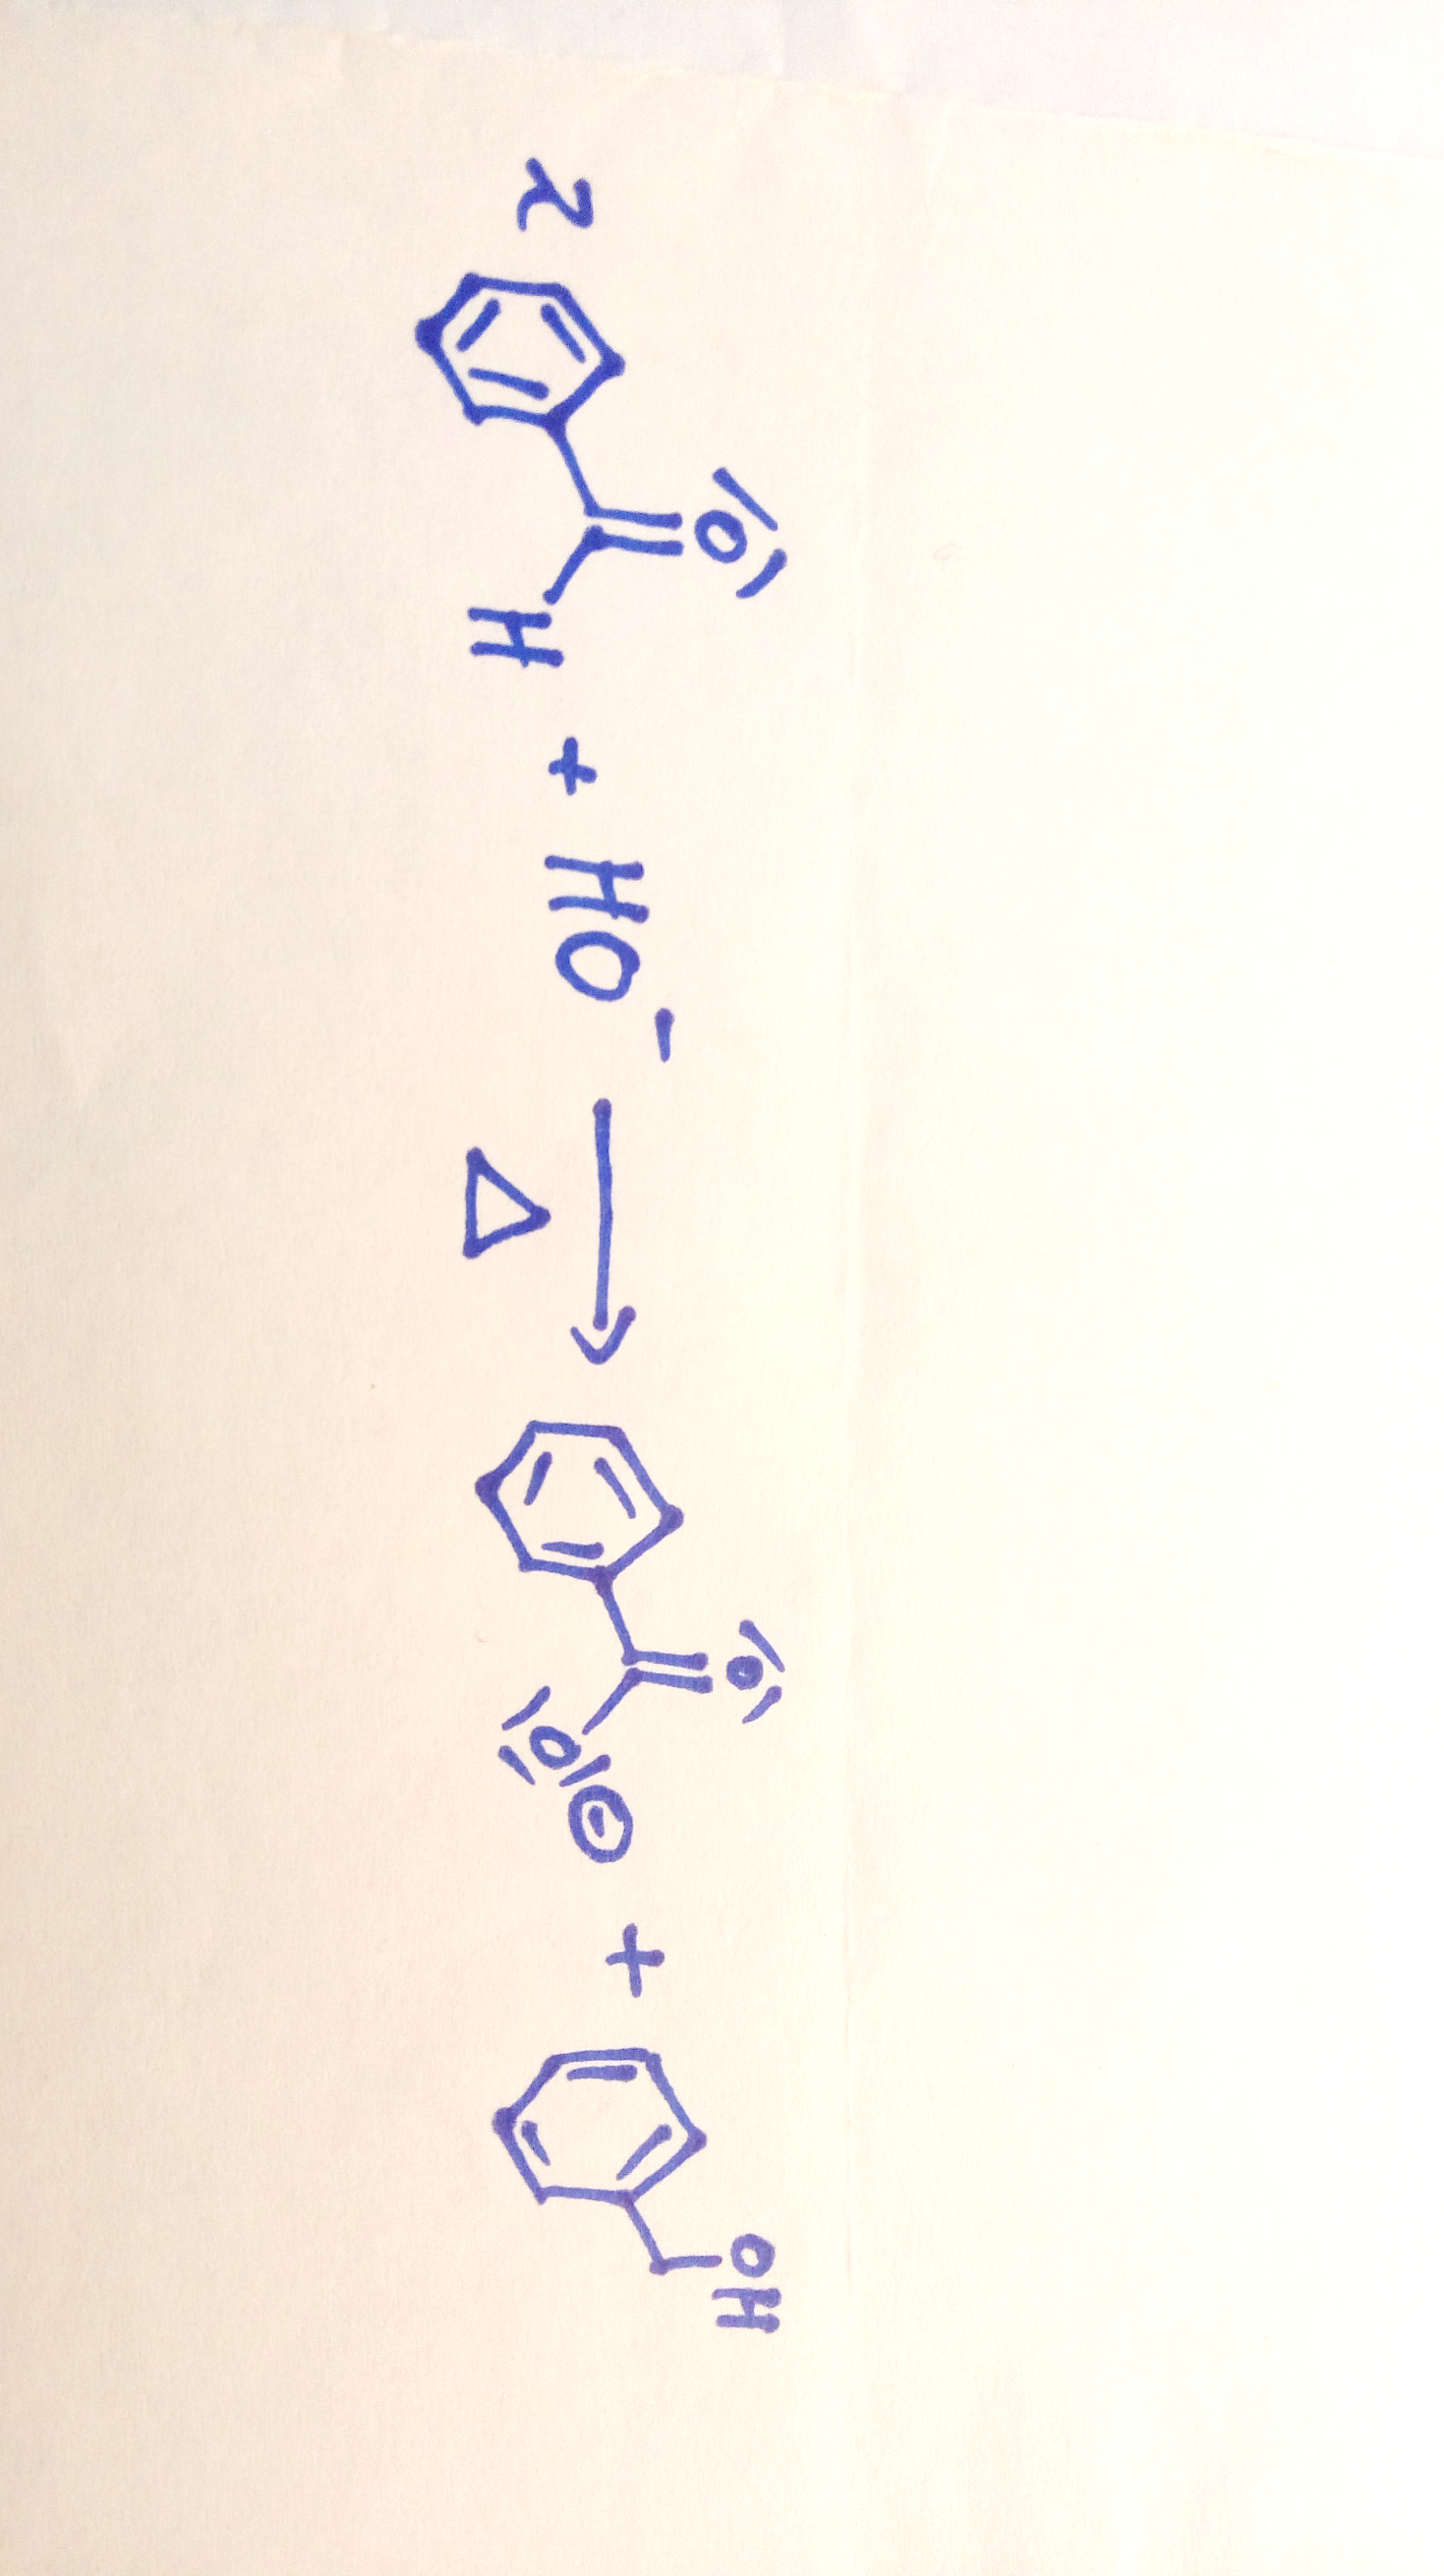 2 O H + HO⁻ → Δ O O ⊖ + OH